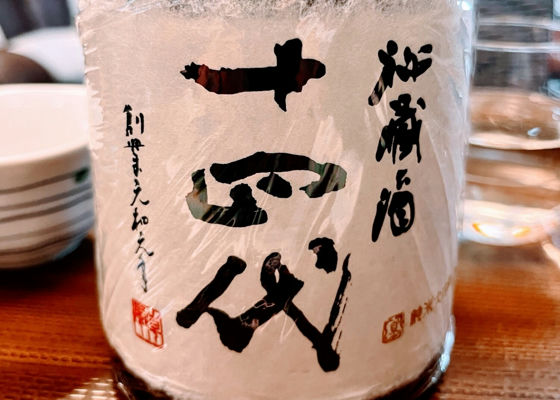 秘蔵酒
十四代
創業元和元年
純米大